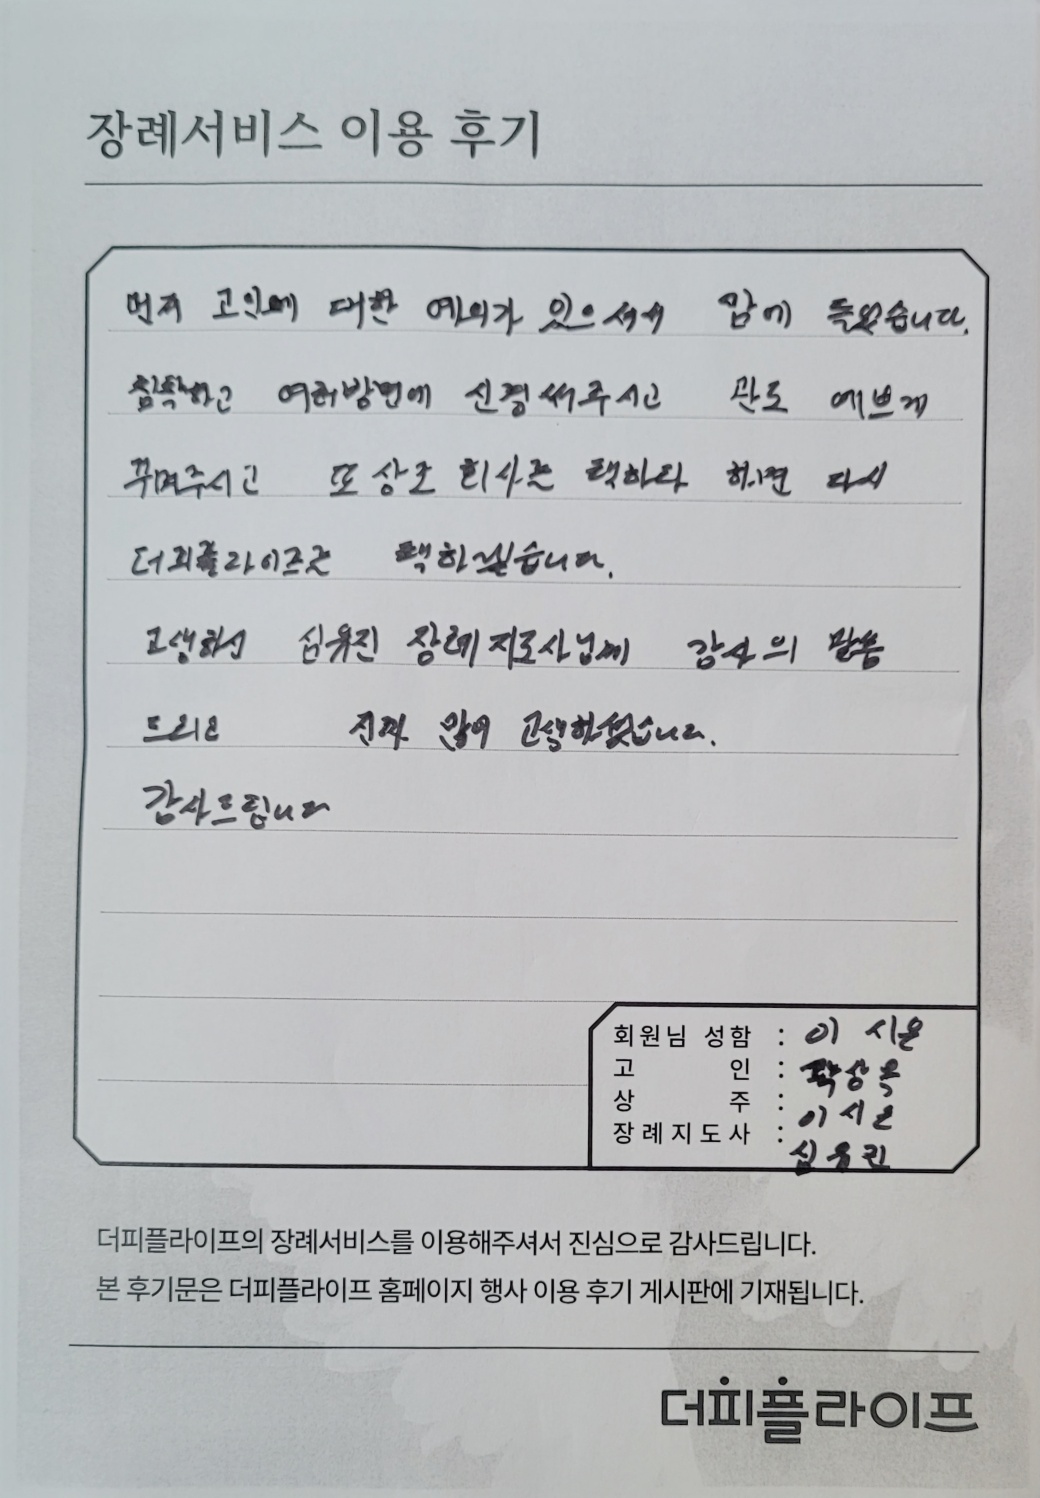 장례서비스 이용 후기
먼저 고인에 대한 예의가 있으셔서 맘에 들었습니다.
침착하고 여러방면에 신경써주시고 관도 예쁘게
꾸며주시고 또 상조 회사를 택하라 하면 다시
더피플라이프를 택하겠습니다.
고생하신 심유진 장례지도사님께 감사의 말씀
드리고 진짜 많이 고생하셨습니다.
감사드립니다
회원님 성함 : 이 시은
고 인 :
상 주 : 이시은
장례지도사 : 심유진
더피플라이프의 장례서비스를 이용해주셔서 진심으로 감사드립니다.
본 후기문은 더피플라이프 홈페이지 행사 이용 후기 게시판에 기재됩니다.
더피플라이프